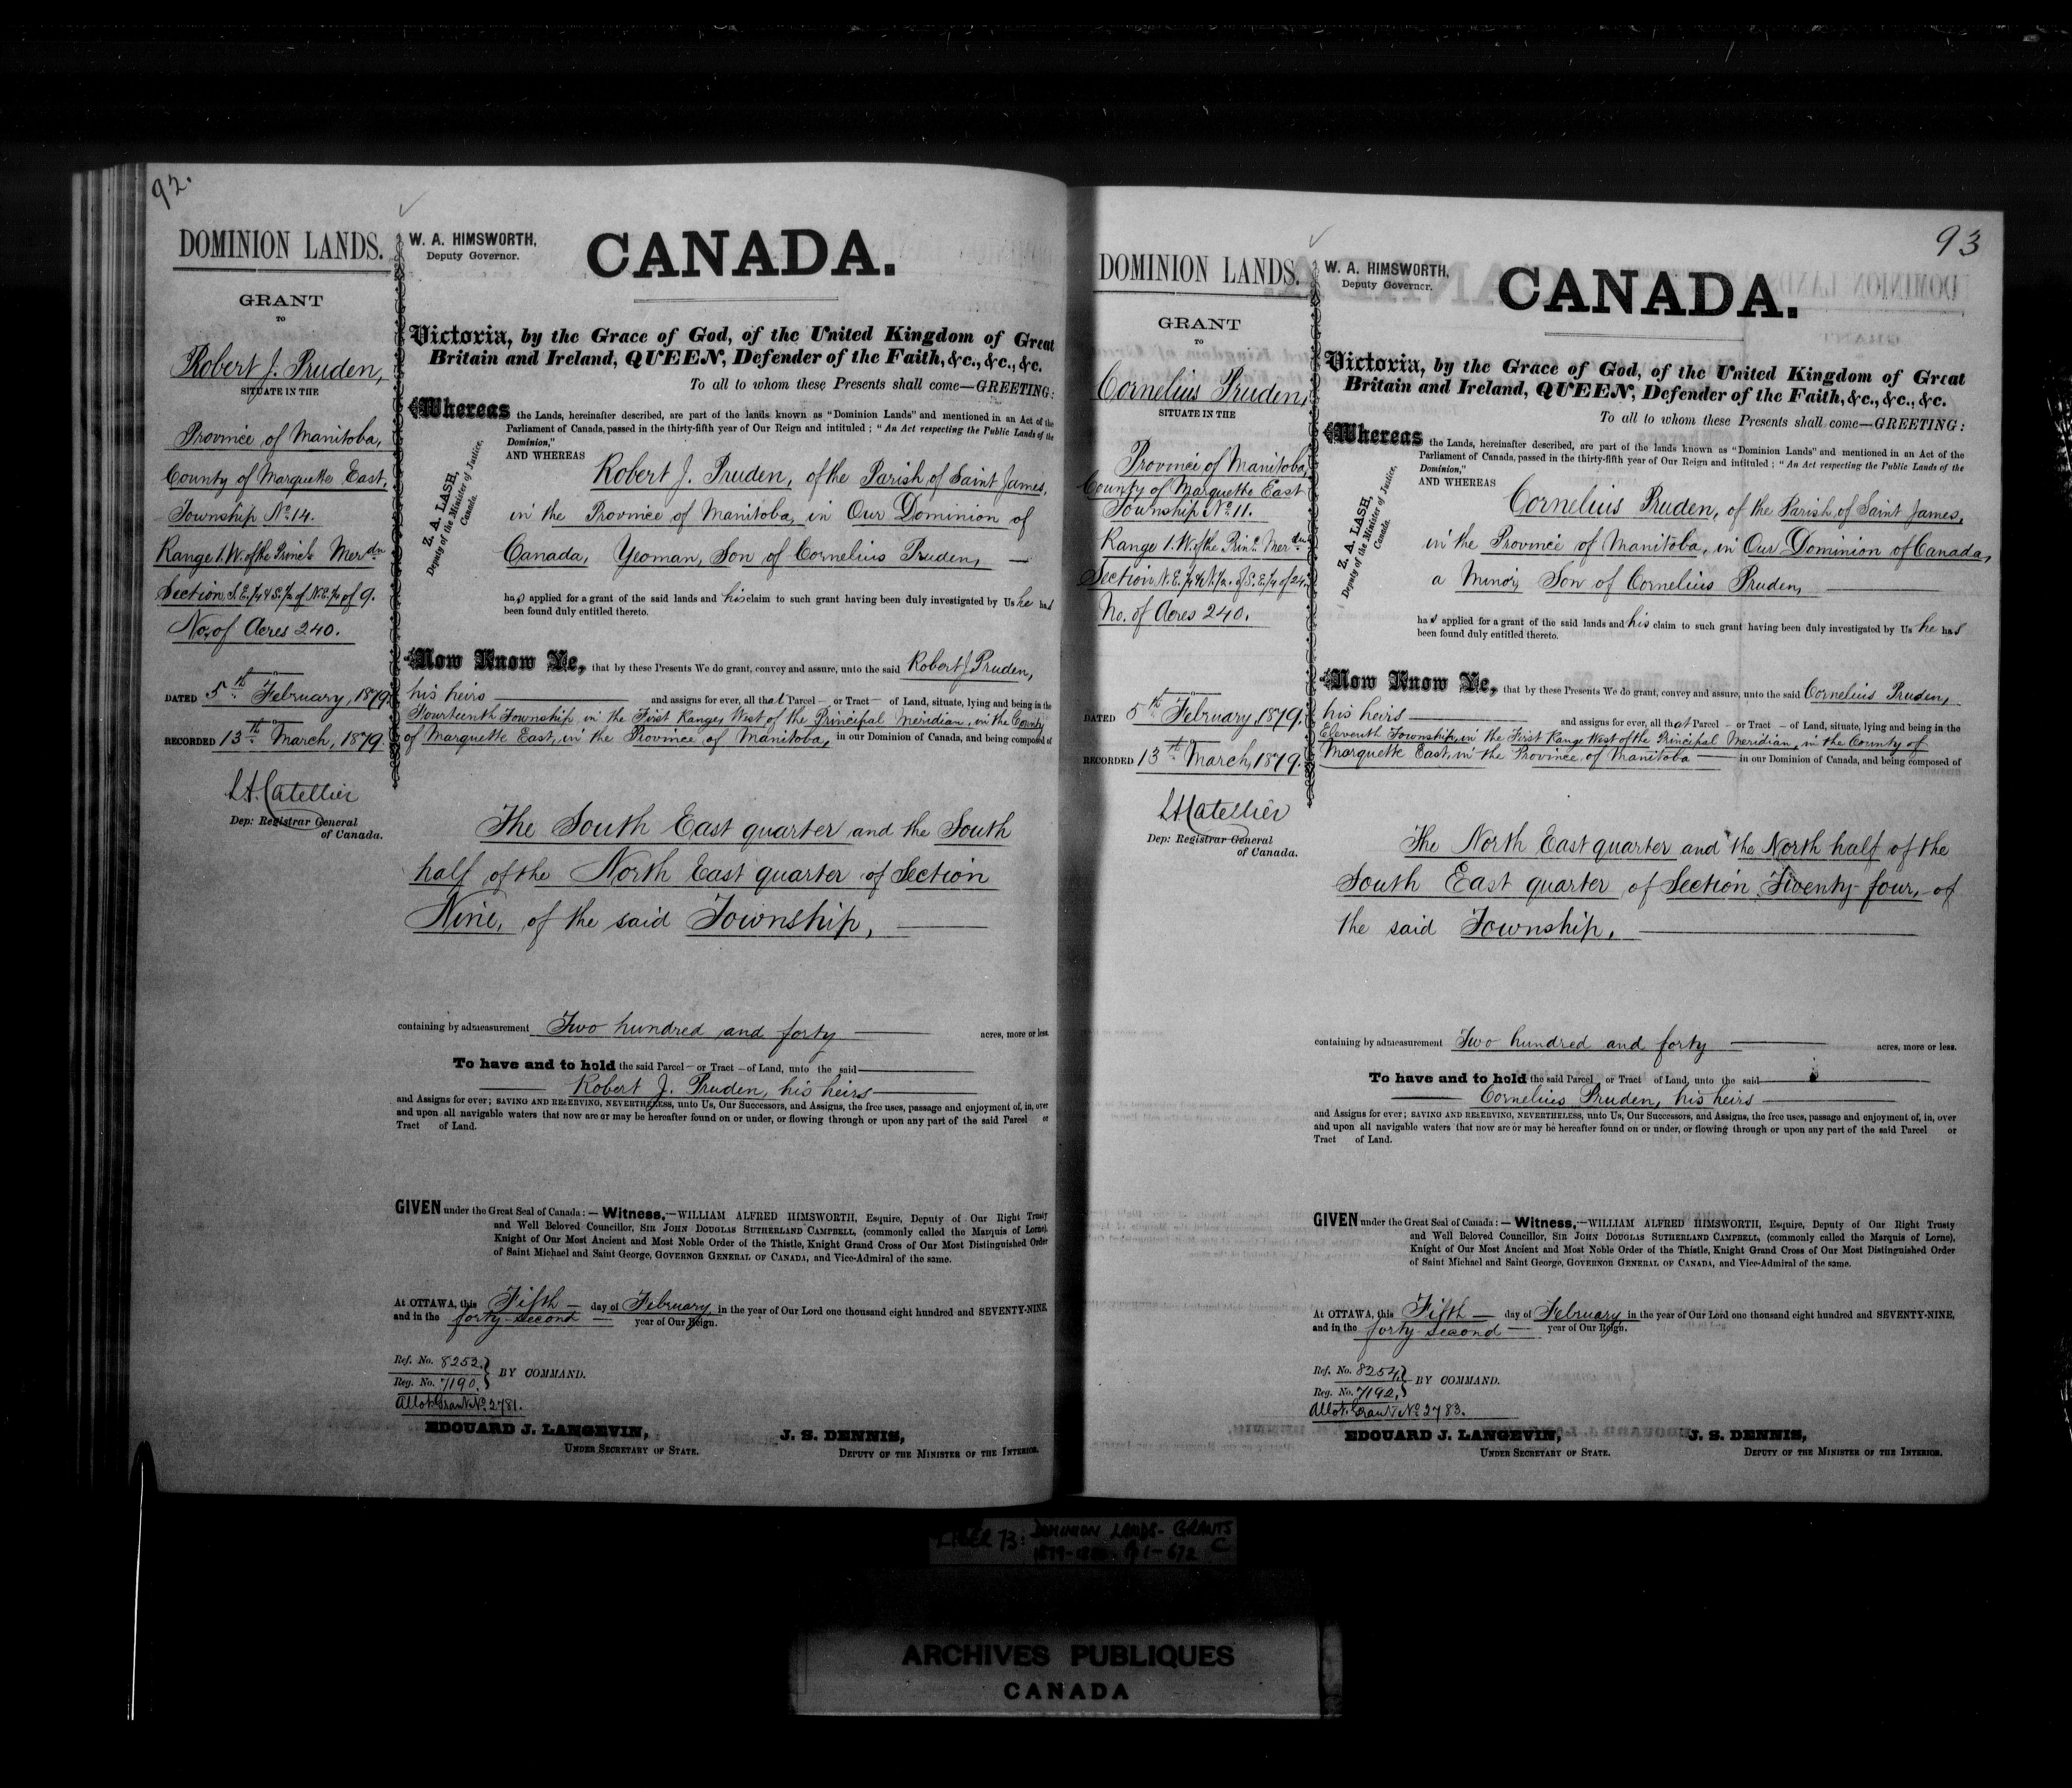 92.
DOMINION LANDS.
GRANT
TO
Robert J. Pruden,
SITUATE IN THE
Province of Manitoba,
County of Marquette East,
Township No. 14.
Range 1. W. of the Princl. Merdn
Section S.E. 1/4 & S. 1/2 of N.E. 1/4 of 9.
No. of Acres 240.
DATED 5th February, 1879.
RECORDED 13th March, 1879.
L.A. Catellier
Dep: Registrar General
of Canada.
W. A. HIMSWORTH,
Deputy Governor.
CANADA.
Victoria, by the Grace of God, of the United Kingdom of Great
Britain and Ireland, QUEEN, Defender of the Faith, &c., &c., &c.
To all to whom these Presents shall come—GREETING:
Z. A. LASH,
Deputy of the Minister of Justice,
Canada.
Whereas the Lands, hereinafter described, are part of the lands known as “Dominion Lands” and mentioned in an Act of the
Parliament of Canada, passed in the thirty-fifth year of Our Reign and intituled; “An Act respecting the Public Lands of the
Dominion,”
AND WHEREAS
Robert J. Pruden, of the Parish of Saint James,
in the Province of Manitoba, in Our Dominion of
Canada, Yeoman, Son of Cornelius Pruden, —
has applied for a grant of the said lands and his claim to such grant having been duly investigated by Us he has
been found duly entitled thereto.
Now Know Ye, that by these Presents We do grant, convey and assure, unto the said Robert J Pruden,
his heirs — and assigns for ever, all that Parcel — or Tract — of Land, situate, lying and being in the
Fourteenth Township, in the First Range, West of the Principal Meridian, in the County
of Marquette East, in the Province of Manitoba, in our Dominion of Canada, and being composed of
The South East quarter and the South
half of the North East quarter of Section
Nine, of the said Township, —
containing by admeasurement Two hundred and forty — acres, more or less.
To have and to hold the said Parcel — or Tract — of Land, unto the said —
— Robert J. Pruden, his heirs —
and Assigns for ever; SAVING AND RESERVING, NEVERTHELESS, unto Us, Our Successors, and Assigns, the free uses, passage and enjoyment of, in, over
and upon all navigable waters that now are or may be hereafter found on or under, or flowing through or upon any part of the said Parcel or
Tract of Land.
GIVEN under the Great Seal of Canada: — Witness, — WILLIAM ALFRED HIMSWORTH, Esquire, Deputy of Our Right Trusty
and Well Beloved Councillor, SIR JOHN DOUGLAS SUTHERLAND CAMPBELL, (commonly called the Marquis of Lorne),
Knight of Our Most Ancient and Most Noble Order of the Thistle, Knight Grand Cross of Our Most Distinguished Order
of Saint Michael and Saint George, GOVERNOR GENERAL OF CANADA, and Vice-Admiral of the same.
At OTTAWA, this Fifth — day of February, in the year of Our Lord one thousand eight hundred and SEVENTY-NINE,
and in the forty-second — year of Our Reign.
Ref. No. 8252.
Reg. No. 7190.
BY COMMAND.
Allot. Grant No. 2781.
EDOUARD J. LANGEVIN,
UNDER SECRETARY OF STATE.
J. S. DENNIS,
DEPUTY OF THE MINISTER OF THE INTERIOR.
93
DOMINION LANDS.
GRANT
TO
Cornelius Pruden,
SITUATE IN THE
Province of Manitoba,
County of Marquette East
Township No. 11.
Range 1. W. of the Princl. Merdn
Section N.E. 1/4 & N. 1/2 of S.E. 1/4 of 24.
No. of Acres 240.
DATED 5th February, 1879.
RECORDED 13th March, 1879.
L.A. Catellier
Dep: Registrar General
of Canada.
W. A. HIMSWORTH,
Deputy Governor.
CANADA.
Victoria, by the Grace of God, of the United Kingdom of Great
Britain and Ireland, QUEEN, Defender of the Faith, &c., &c., &c.
To all to whom these Presents shall come—GREETING:
Z. A. LASH,
Deputy of the Minister of Justice,
Canada.
Whereas the Lands, hereinafter described, are part of the lands known as “Dominion Lands” and mentioned in an Act of the
Parliament of Canada, passed in the thirty-fifth year of Our Reign and intituled; “An Act respecting the Public Lands of the
Dominion,”
AND WHEREAS
Cornelius Pruden, of the Parish of Saint James,
in the Province of Manitoba, in Our Dominion of Canada,
a Minor, Son of Cornelius Pruden, —
has applied for a grant of the said lands and his claim to such grant having been duly investigated by Us he has
been found duly entitled thereto.
Now Know Ye, that by these Presents We do grant, convey and assure, unto the said Cornelius Pruden,
his heirs — and assigns for ever, all that Parcel — or Tract — of Land, situate, lying and being in the
Eleventh Township, in the First Range West of the Principal Meridian, in the County of
Marquette East, in the Province of Manitoba — in our Dominion of Canada, and being composed of
The North East quarter and the North half of the
South East quarter of Section Twenty four, of
the said Township, —
containing by admeasurement Two hundred and forty — acres, more or less.
To have and to hold the said Parcel or Tract of Land, unto the said —
— Cornelius Pruden, his heirs —
and Assigns for ever; SAVING AND RESERVING, NEVERTHELESS, unto Us, Our Successors, and Assigns, the free uses, passage and enjoyment of, in, over
and upon all navigable waters that now are or may be hereafter found on or under, or flowing through or upon any part of the said Parcel or
Tract of Land.
GIVEN under the Great Seal of Canada: — Witness, — WILLIAM ALFRED HIMSWORTH, Esquire, Deputy of Our Right Trusty
and Well Beloved Councillor, SIR JOHN DOUGLAS SUTHERLAND CAMPBELL, (commonly called the Marquis of Lorne),
Knight of Our Most Ancient and Most Noble Order of the Thistle, Knight Grand Cross of Our Most Distinguished Order
of Saint Michael and Saint George, GOVERNOR GENERAL OF CANADA, and Vice-Admiral of the same.
At OTTAWA, this Fifth — day of February in the year of Our Lord one thousand eight hundred and SEVENTY-NINE,
and in the forty-second — year of Our Reign.
Ref. No. 8254.
Reg. No. 7192.
BY COMMAND.
Allot. Grant No. 2783.
EDOUARD J. LANGEVIN,
UNDER SECRETARY OF STATE.
J. S. DENNIS,
DEPUTY OF THE MINISTER OF THE INTERIOR.
LIBER 73: DOMINION LANDS- GRANTS
1879-1880 P 1-672 C
ARCHIVES PUBLIQUES
CANADA